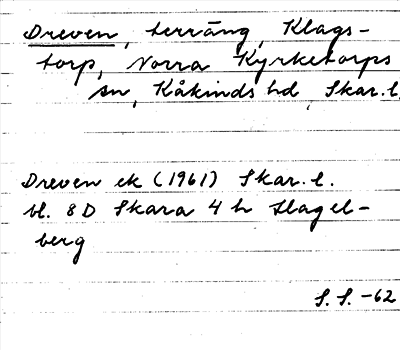 Dreven, terräng, Klags-
torp, Norra Kyrketorps
sn, Kåkinds hd, Skar. l.
Dreven ek (1961) Skar. l.
bl. 8D Skara 4 h Slagel-
berg
S. S. -62